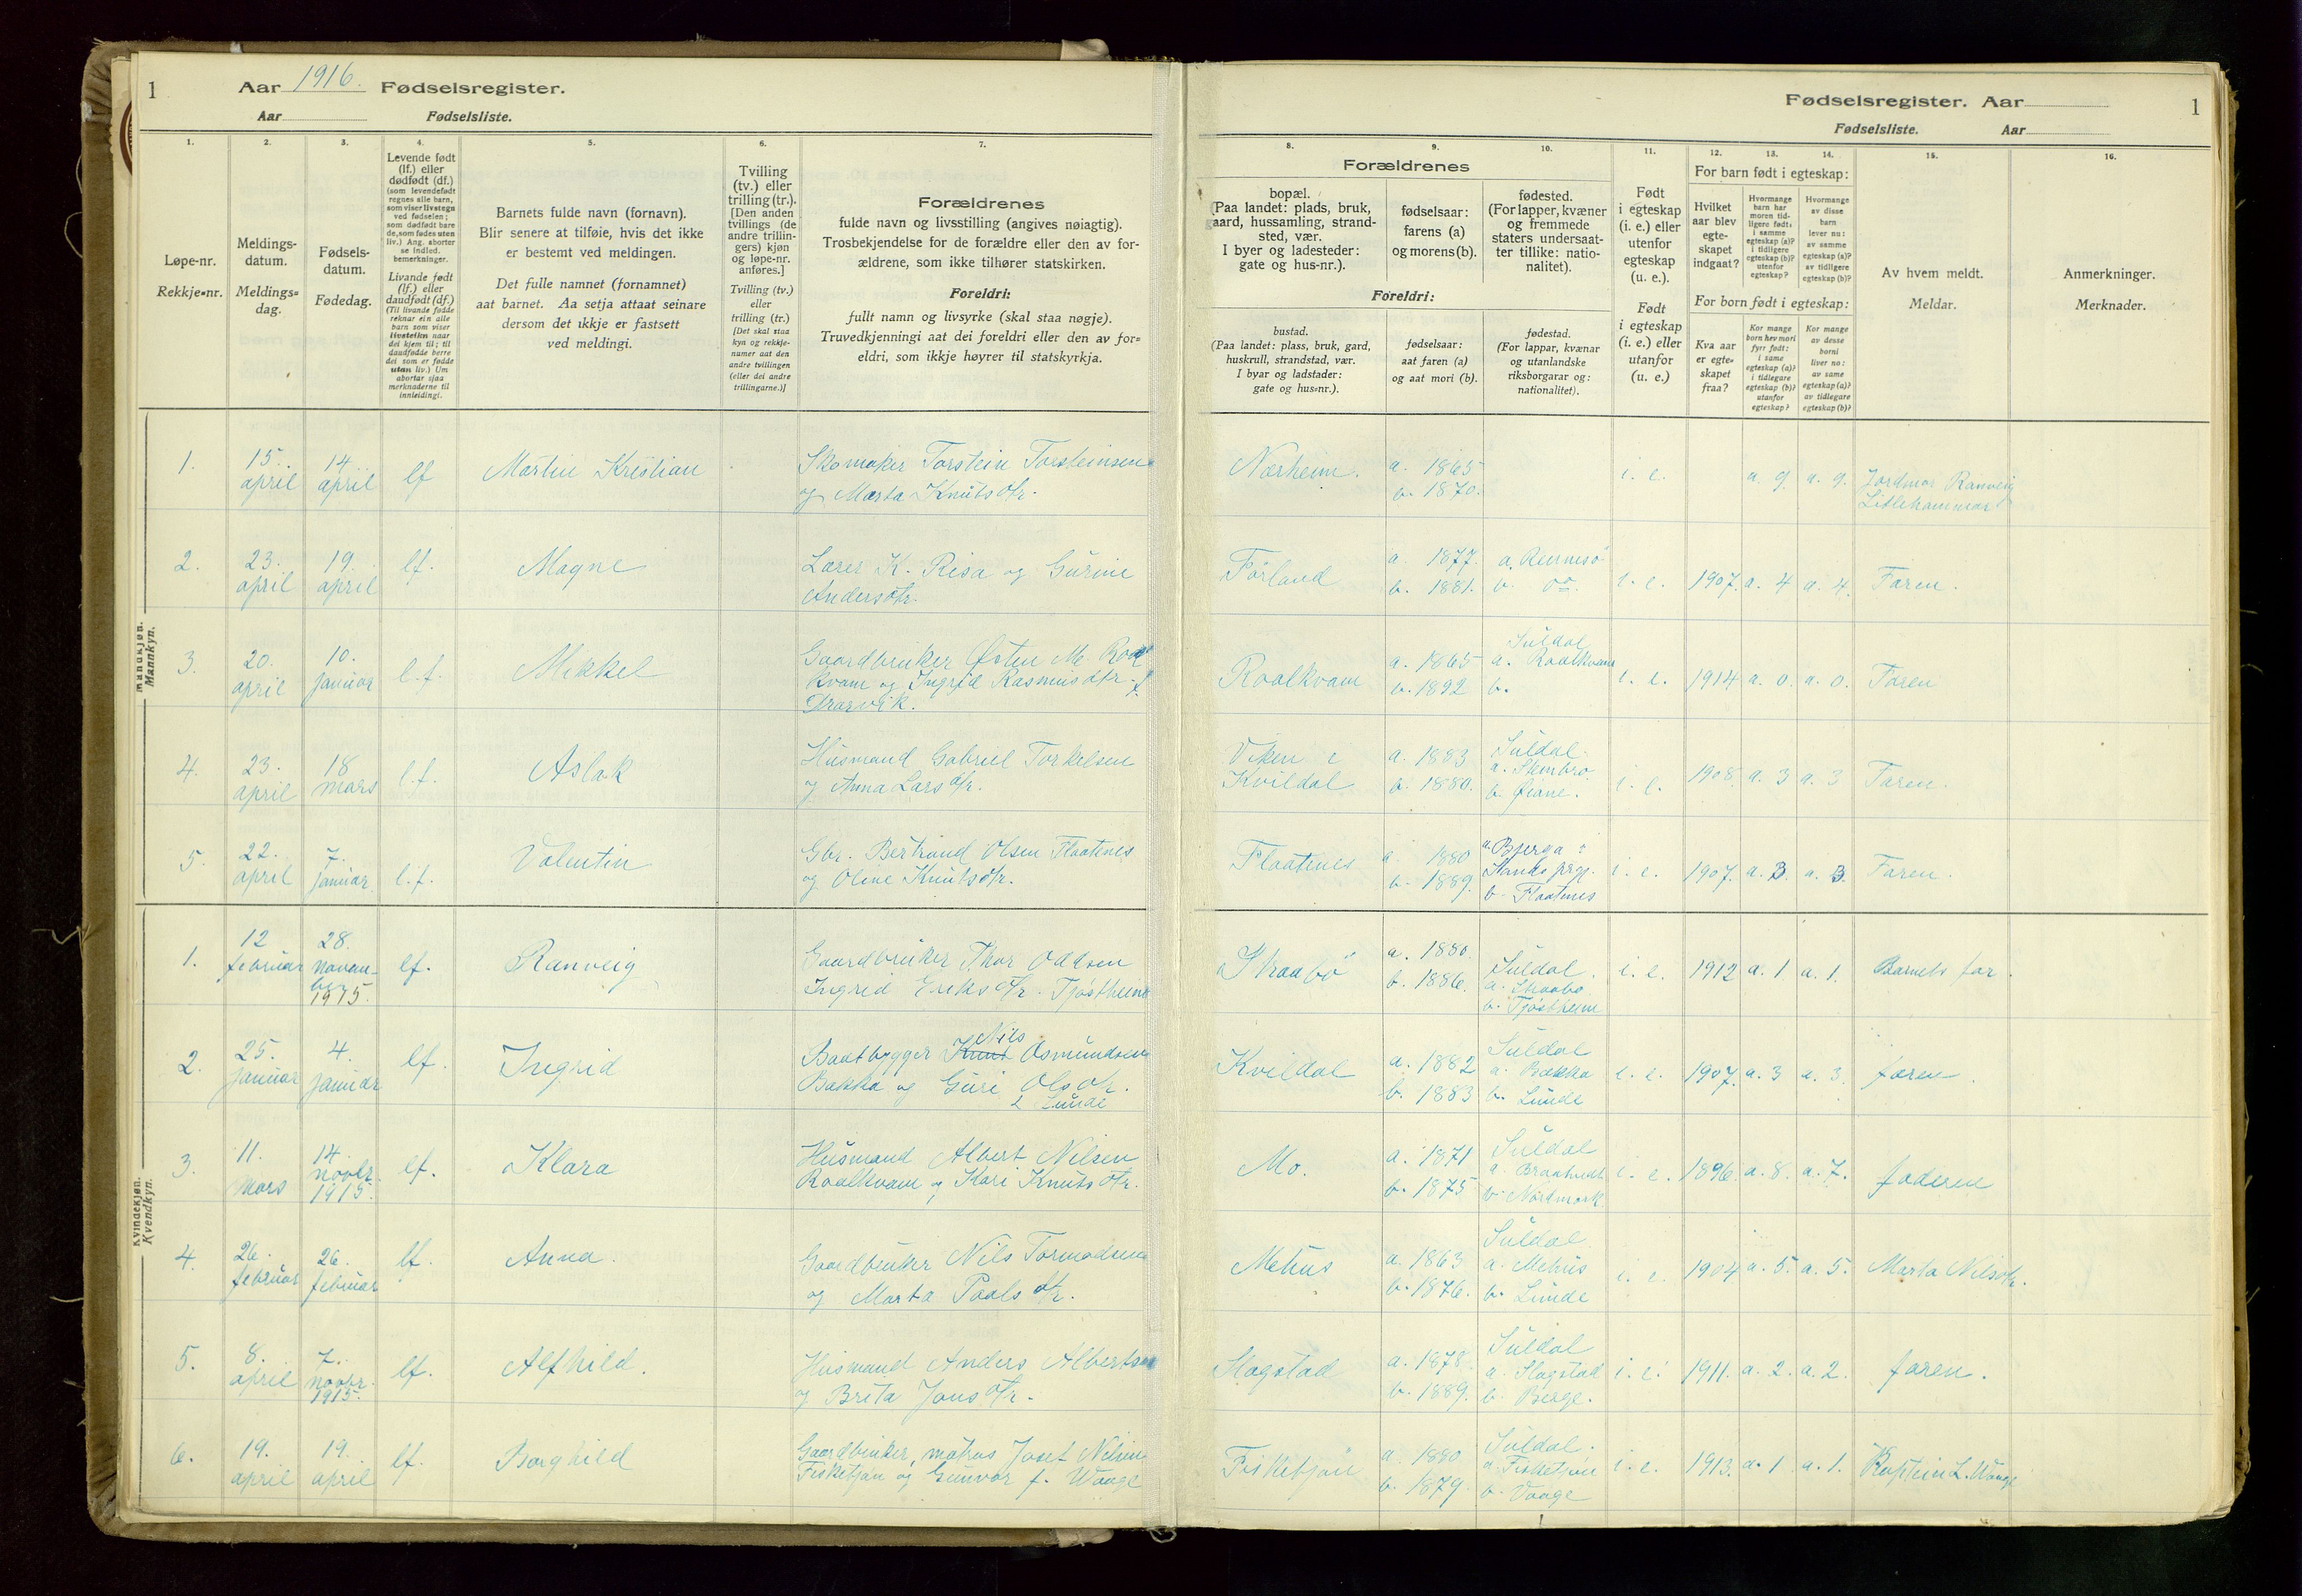 1
Aar 1916. Fødselsregister.
Aar Fødselsliste.
Fødselsregister. Aar
Fødselsliste. Aar
1
1.
Løpe-nr.
Rekkje-nr.
2.
Meldings-
datum.
Meldings-
dag.
3.
Fødsels-
datum.
Fødedag.
4.
Levende født
(lf.) eller
dødfødt (df.)
(som levendefødt
regnes alle barn,
som viser livstegn
ved fødselen;
som dødfødt bare
de, som fødes uten
liv.) Ang. aborter
se indled.
bemerkninger.
Livande født
(lf.) eller
daudfødt (df.)
(Til livande fødde
reknar ein alle
barn som viser
livsteikn naar
dei kjem til; til
daudfødde berre
dei som er fødde
utan liv.) Um
abortar sjaa
merknaderne til
innleidingi.
5.
Barnets fulde navn (fornavn).
Blir senere at tilføie, hvis det ikke
er bestemt ved meldingen.
Det fulle namnet (fornamnet)
aat barnet. Aa setja attaat seinare
dersom det ikkje er fastsett
ved meldingi.
6.
Tvilling
(tv.) eller
trilling (tr.).
[Den anden
tvillings (de
andre trillin-
gers) kjøn
og løpe-nr.
anføres.]
Tvilling (tv.)
eller
trilling (tr.)
[Det skal staa
kyn og rekkje-
numer aat den
andre tvillingen
(eller dei andre
trillingarne.)]
7.
Forældrenes
fulde navn og livsstilling (angives nøiagtig).
Trosbekjendelse for de forældre eller den av for-
ældrene, som ikke tilhører statskirken.
Foreldri:
fullt namn og livsyrke (skal staa nøgje).
Truvedkjenningi aat dei foreldri eller den av for-
eldri, som ikkje høyrer til statskyrkja.
Forældrenes
8.
bopæl.
(Paa landet: plads, bruk,
gaard, hussamling, strand-
sted, vær.
I byer og ladesteder:
gate og hus-nr.).
Foreldri:
bustad.
(Paa landet: plass, bruk, gard,
huskrull, strandstad, vær.
I byar og ladstader:
gate og hus-nr.).
9.
fødselsaar:
farens (a)
og morens (b).
fødselsaar:
aat faren (a)
og aat mori (b).
10.
fødested.
(For lapper, kvæner
og fremmede
staters undersaat-
ter tillike: natio-
nalitet).
fødestad.
(For lappar, kvænar
og utanlandske
riksborgarar og:
nationalitet).
11.
Født
i egteskap
(i. e.) eller
utenfor
egteskap
(u. e.).
Født
i egteskap
(i. e.) eller
utanfor
(u. e.)
For barn født i egteskap:
12.
Hvilket
aar blev
egte-
skapet
indgaat?
For born født i egteskap:
Kva aar
er egte-
skapet
fraa?
13.
Hvormange
barn har
moren tid-
ligere født:
i samme
egteskap (a)?
i tidligere
egteskap (b)?
utenfor
egteskap?
Kor mange
born hev mori
fyrr født:
i same
egteskap (a)?
i tidlegare
egteskap (b)?
utanfor
egteskap?
14.
Hvormange
av disse
barn
lever nu:
av samme
egteskap (a)?
av tidligere
egteskap (b)?
Kor mange
av desse
borni
liver no:
av same
egteskap (a)?
av tidlegare
egteskap (b)?
15.
Av hvem meldt.
Meldar.
16.
Anmerkninger.
Merknader.
Mandkjøn.
Mannkyn.
1. 15. april 14 april lf Martin Kristian
Skomaker Torstein Torsteinsen
og Marta Knutsdtr.
Nærheim. a. 1865 b. 1870. i. e. a. 9. a. 9. Jordmor Ranveig
Litlehammar
2. 23. april 19. april lf. Magne
Lærer K. Risa og Gurine
Andersdtr.
Førland a. 1877. b. 1881. a. Rennesø b. do. i. e. 1907. a. 4 a. 4. Faren.
3. 20. april 10. januar l.f. Mikkel
Gaardbruker Østen M. Roal
kvam og Ingrid Rasmusdtr. f.
Drarvik.
Roalkvam a. 1865 b. 1892 Suldal a. Roalkvam b. i. e. 1914 a. 0. a. 0. Faren
4. 23. april 18 mars l.f. Aslak
Husmand Gabriel Torkelsen
og Anna Larsdtr.
Viken i
Kvildal a. 1883 b. 1880. Suldal. b. Øiane. i. e. 1908. a. 3 a. 3 Faren.
5. 22. april 7. januar. l.f. Valentin
Gbr. Bertrand Olsen Flaatenes
og Oline Knutsdtr.
Flaatenes a. 1880 b. 1889. a. Bjerga i
b. Flaatenes i. e. 1907. a. 3. a. 3. Faren.
Kvindekjøn.
Kvendkyn.
1. 12 februar 28. november 1915. lf. Ranveig
Gaardbruker Thor Oddsen
Ingrid Eriksdtr. Tjøstheim
Straabø a. 1880. b. 1886. Suldal. a. Straabø b. Tjøstheim i. e. 1912 a. 1 a. 1. Barnets far.
2. 25. januar 4. januar lf. Ingrid
Nils
Baatbygger Knut Osmundsen
Bakka og Guri Olsdtr.
f. Lunde
Kvildal a. 1882 b. 1883 Suldal a. Bakka b. Lunde i. e. 1907. a. 3 a. 3. faren.
3. 11. mars 14. novbr. 1915. lf. Klara
Husmand Albert Nilsen
Roalkvam og Kari Knutsdtr.
Mo. a. 1871 b. 1875 Suldal b. Nordmork i. e. 1896. a. 8. a. 7. faderen
4. 26. februar 26. februar lf. Anna.
Gaardbruker Nils Tormodsen
og Marta Paalsdtr.
Mehus a. 1863 b. 1876. Suldal a. Mehus b. Lunde i. e. 1904 a. 5. a. 5. Marta Nilsdtr.
5. 8. april 7. novbr. 1915. lf. Alfhild.
Husmand Anders Albertsen
og Brita Jonsdtr.
Slagstad a. 1878. b. 1889. Suldal a. Slagstad b. Berge. i. e. 1911. a. 2. a. 2. faren.
6. 19. april 19. april lf. Borghild
Gaardbruker, matros Josef Nilsen
Fisketjøn og Gunvor f. Waage
Fisketjøn a. 1880 b. 1879. Suldal. a. Fisketjøn b. Vaage i. e. 1913. a. 1 a. 1. L. Waage